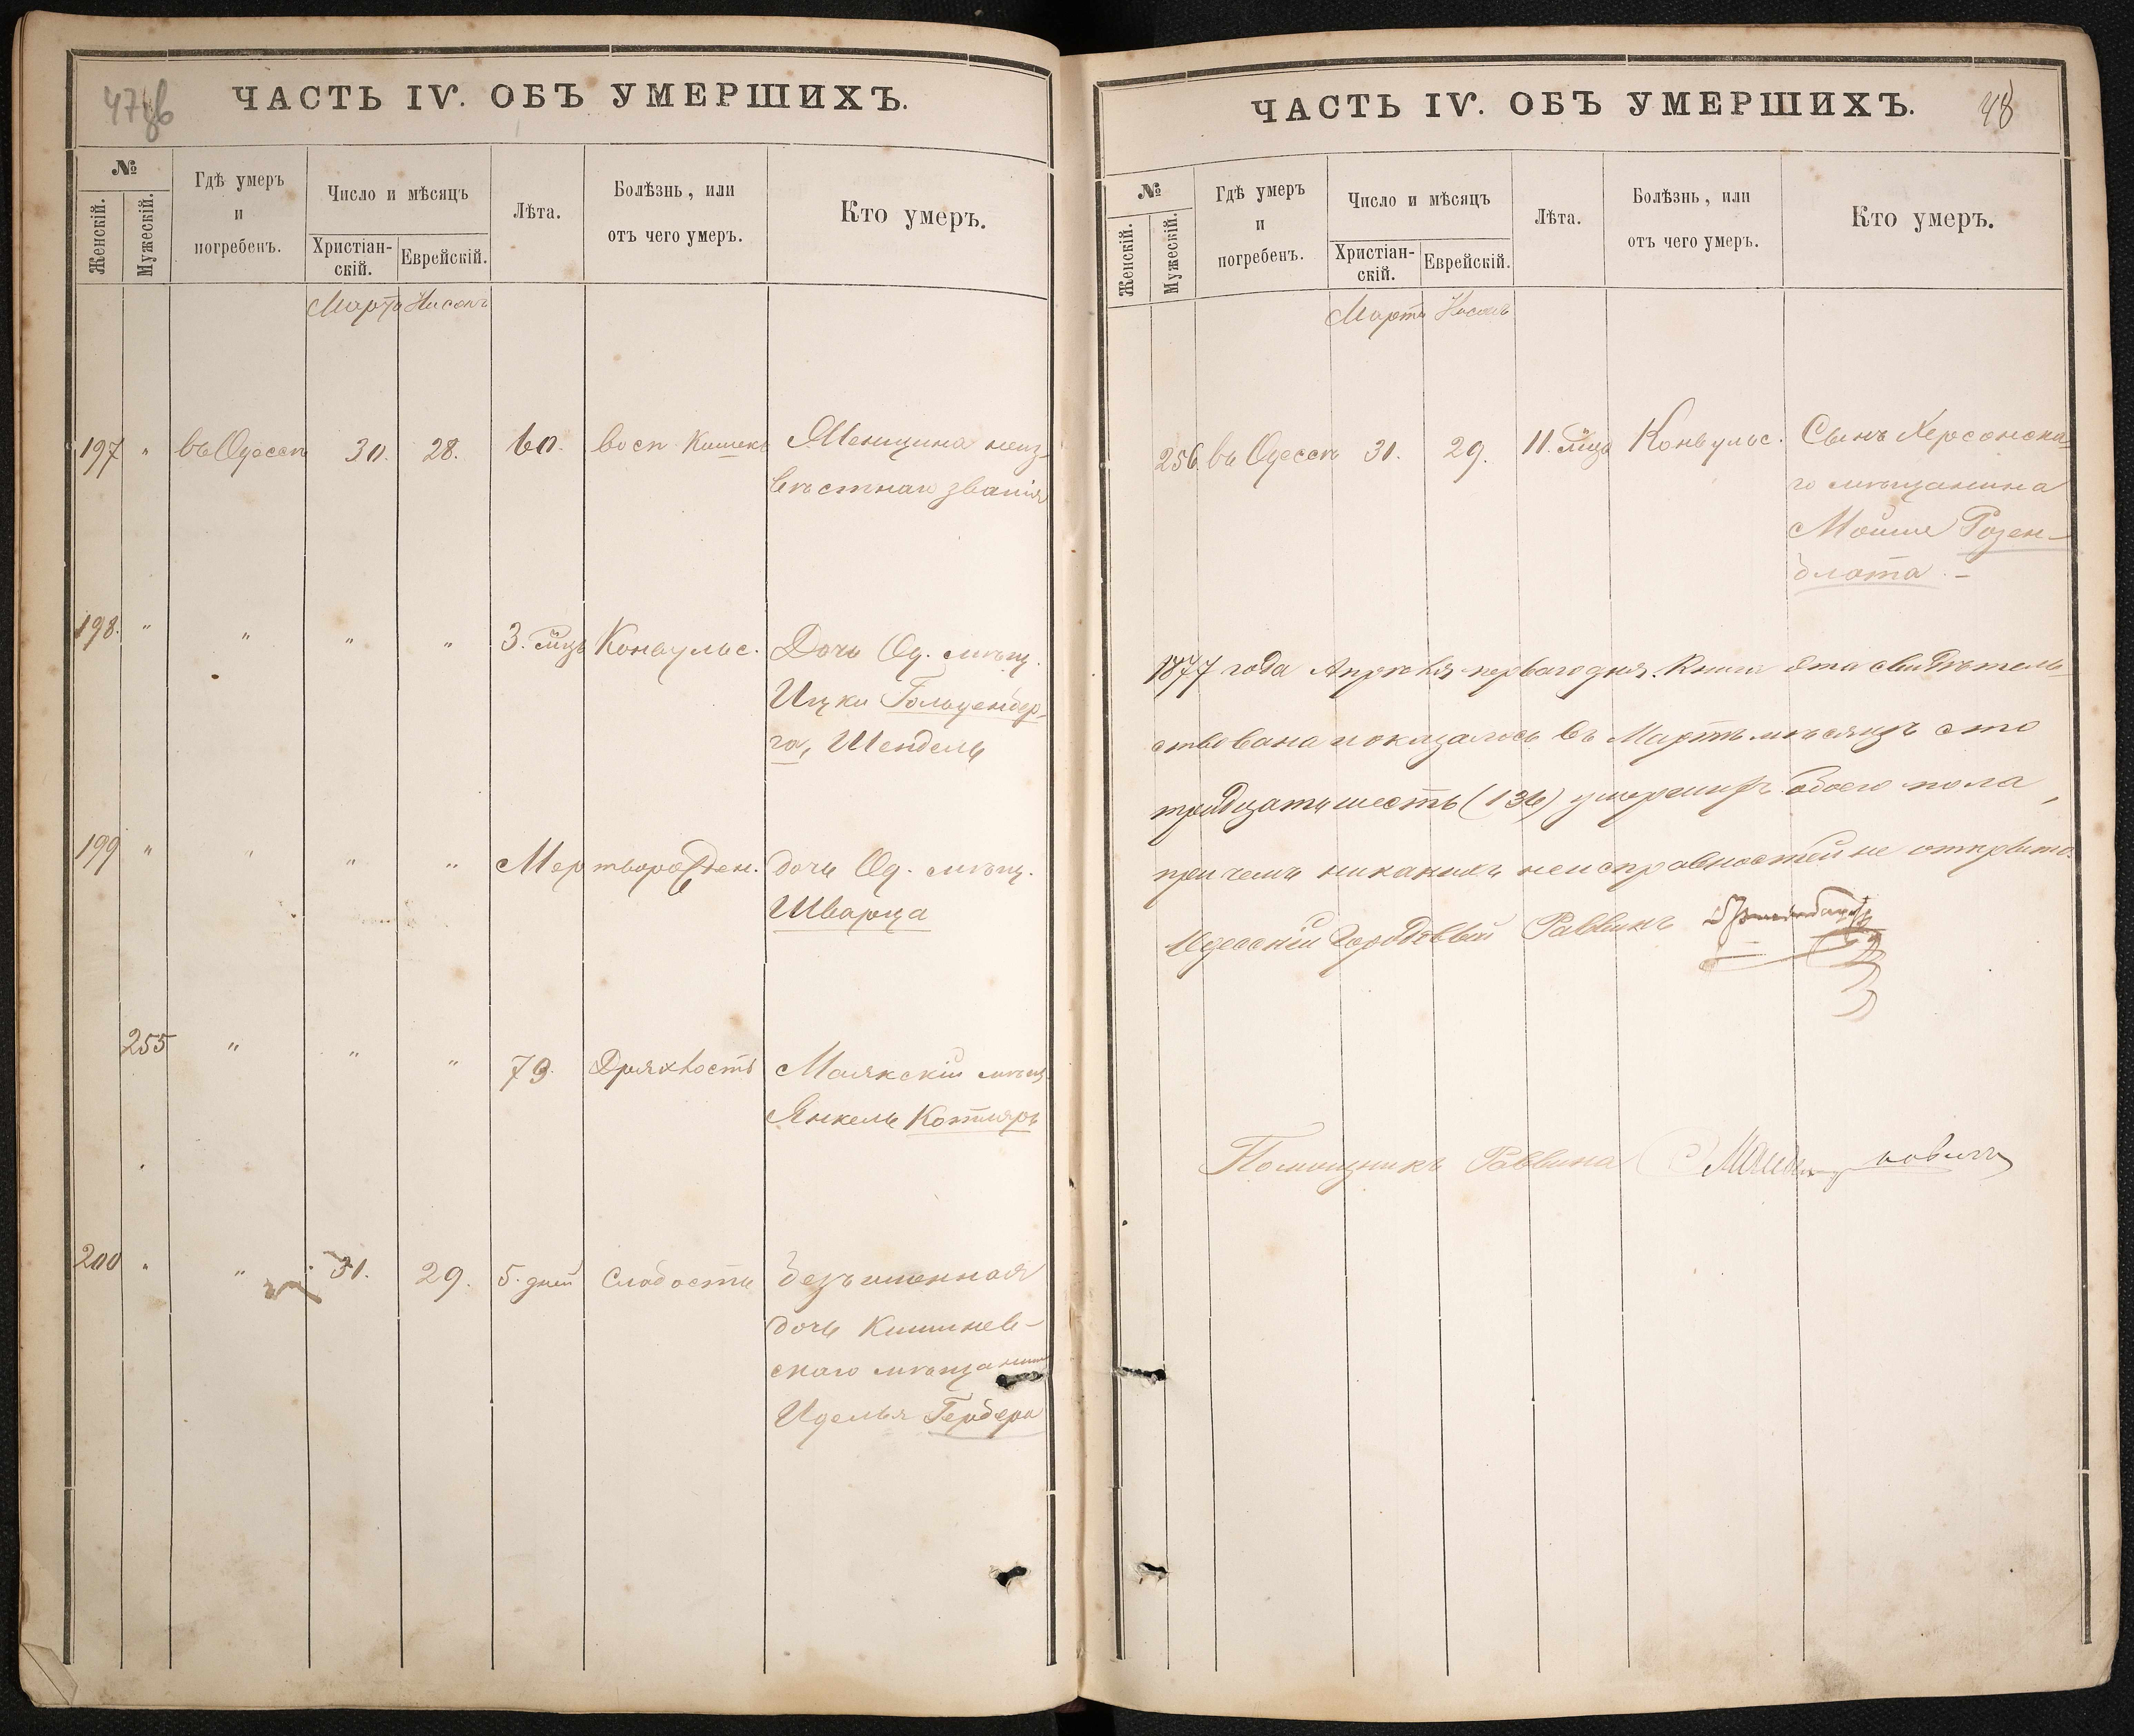 47об
ЧАСТЬ IV. ОБЪ УМЕРШИХЪ.
№
Женскій.
Мужескій.
Гдѣ умеръ
и
погребенъ.
Число и мѣсяцъ
Христіан-
скій.
Еврейскій.
Лѣта.
Болѣзнь, или
отъ чего умеръ.
Кто умеръ.
Мартъ Нисонъ
197 " въ Одессѣ 30. 28. 60. Восп Кишекъ Женщина неиз-
вѣстнаго званія
198. " " " " 3. мцъ Конвульс. Дочь Од. мѣщ.
Ицки Гольденбер-
га, Шендель
199 " " " " Мертворожден. дочь Од. мѣщ.
Шварца
255 " " " 79. Дряхлость Маякскій мѣщ.
Янкель Котляръ
200 " " 31. 29. 5. дней Слабость безъименная
дочь Кишинев-
скаго мѣщанина
Иделя Гербера
48
ЧАСТЬ IV. ОБЪ УМЕРШИХЪ.
№
Женскій.
Мужескій.
Гдѣ умеръ
и
погребенъ.
Число и мѣсяцъ
Христіан-
скій.
Еврейскій.
Лѣта.
Болѣзнь, или
отъ чего умеръ.
Кто умеръ.
Мартъ Нисонъ
256. въ Одессѣ 31. 29. 11. мцъ Конвульс. Сынъ Херсонска-
го мѣщанина
Мошие Розен-
блата. -
1877 года Апрѣля перваго дня. Книга эта свидѣтель-
ствована и оказалось въ Мартѣ мѣсяцѣ сто
тридцать шесть (136) умершихъ обоего пола,
при чемъ никакихъ неисправностей не открыто.
Одесскій Городовый Раввинъ
Помощникъ Раввина